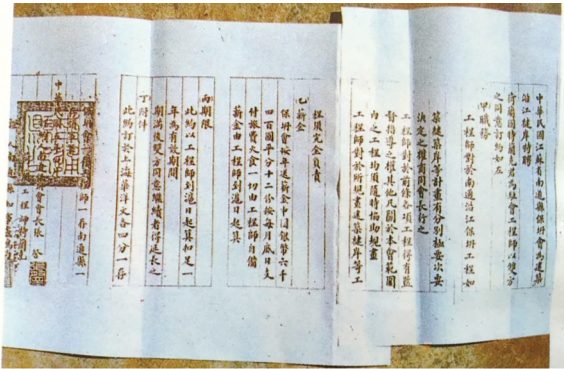 中華民國江蘇省南通保坍會為建築
沿江揵岸特聘
荷蘭國特萊克君為駐會工程師以雙方
之同意訂約如左
甲職務
工程師對於南通沿江保坍工程如
築揵築岸等計畫須分別枇安次安
決定之權商同會長行之
工程師對於前指各項工程得有監
督指導之權其他凡關於本會範圍
內之工程均須隨時協助規畫
工程師對於所規畫建築揵岸等工
程須完全負責
乙薪金
保坍會每年送薪金中國銀幣六千
四百圓平分十二份按每月底日支
付旅費火食一切由工程師自備
薪金由工程師到滬日起算
丙期限
此約以工程師到滬日起算扣足一
年為有效期間
期滿後雙方同意繼續者得延長之
丁附件
此約訂於上海華洋文各四分一存
師一存南通縣一
會會長張詧